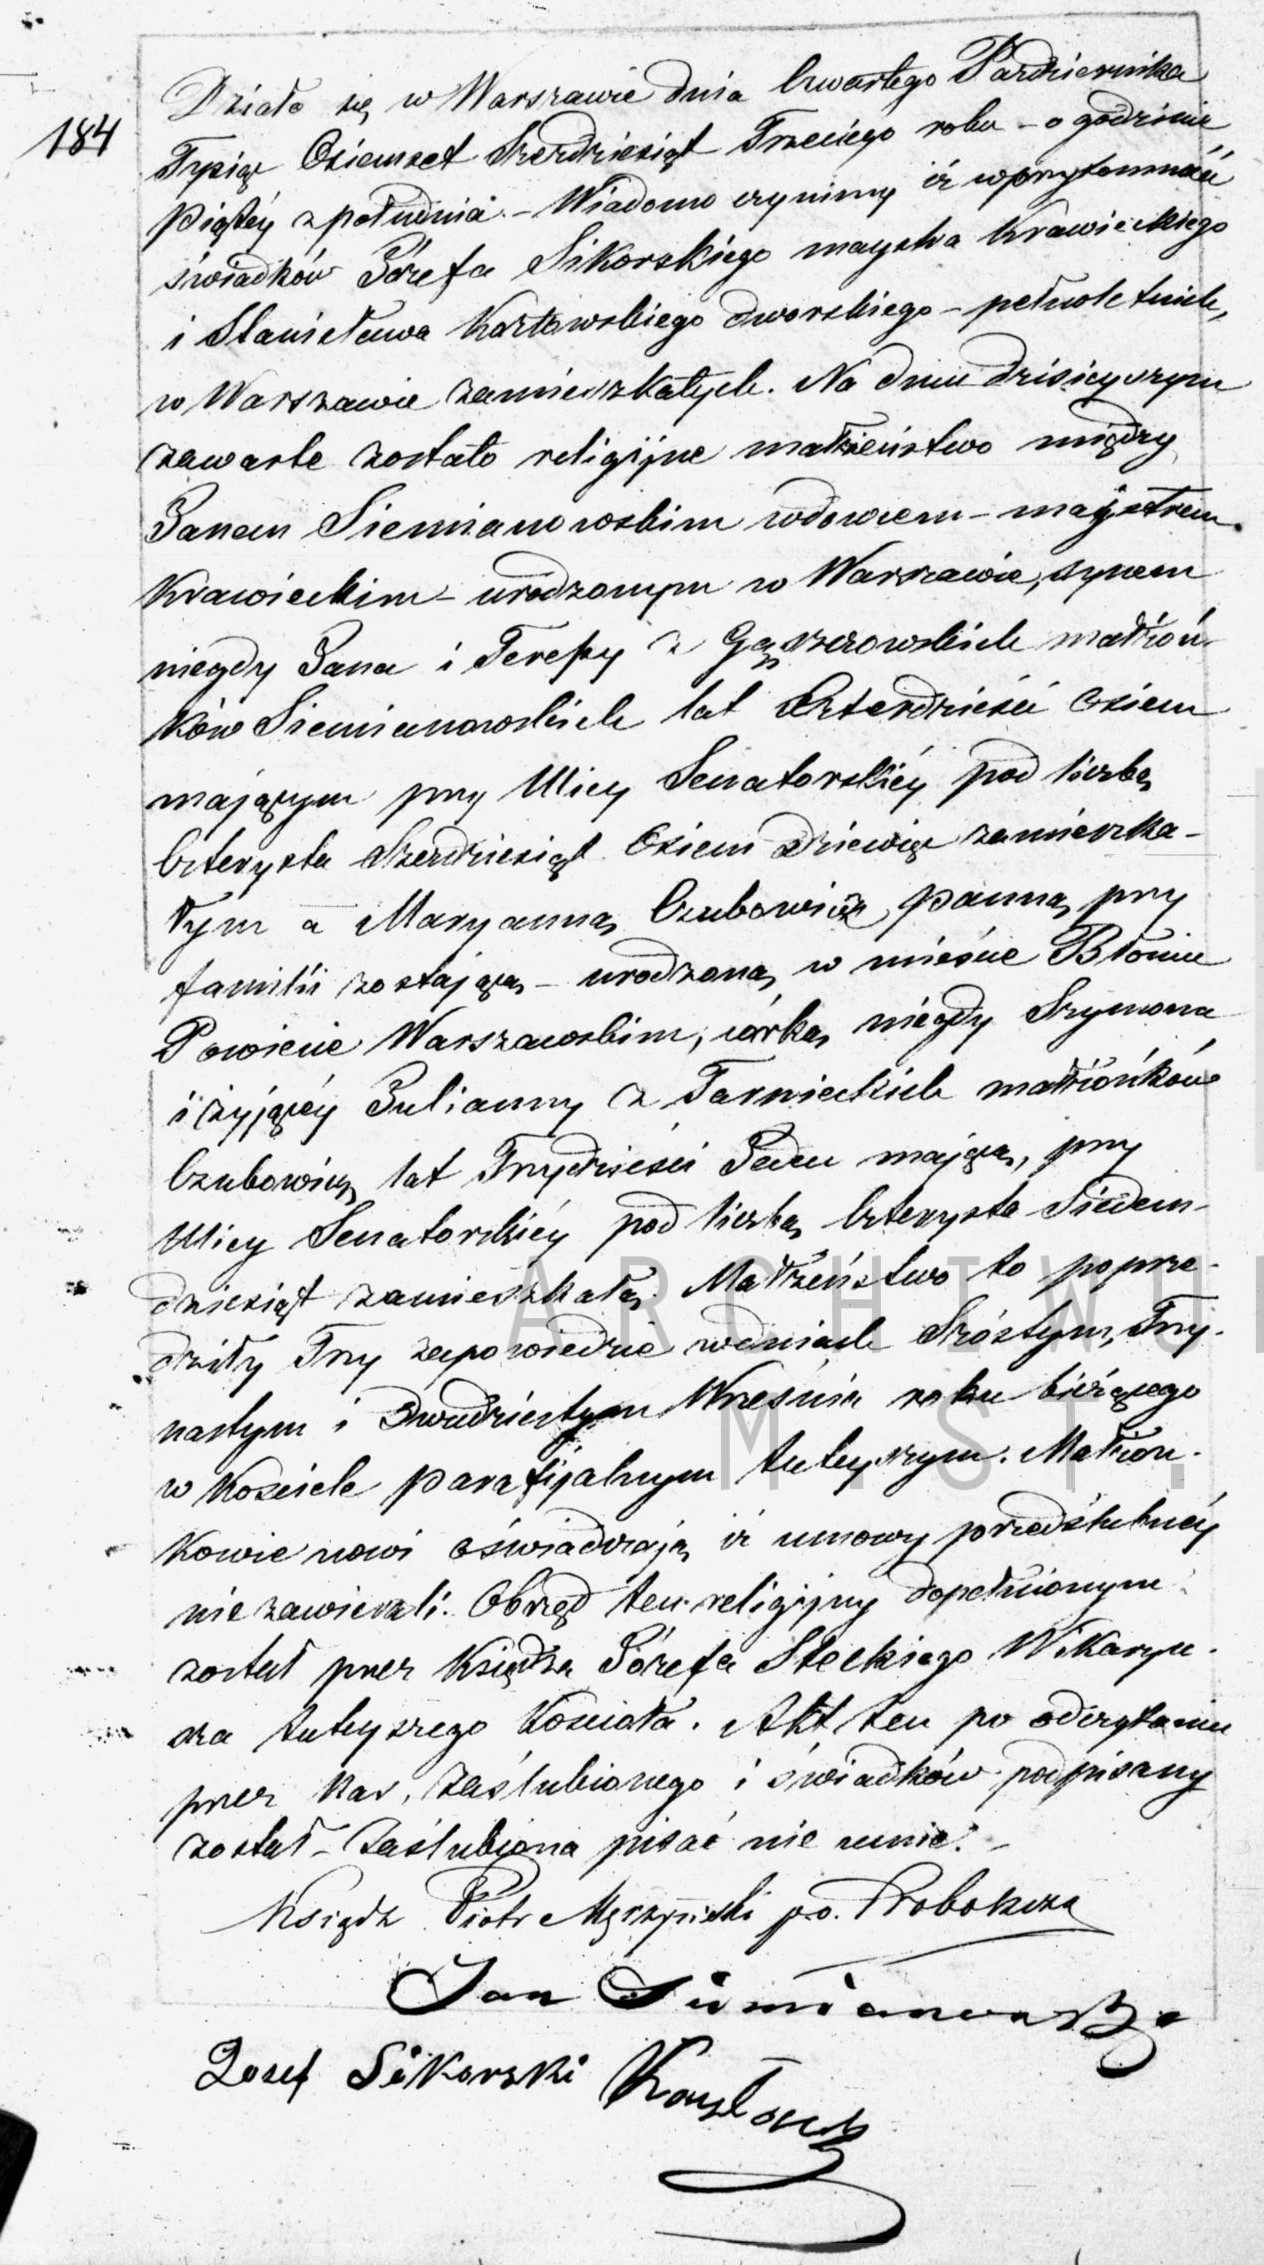 184
Działo się w Warszawie dnia Czwartego Października
Tysiąc Ośiemset Sześćdziesiąt Trzeciego roku – o godzinie
Piątéy z południa. – Wiadomo czynimy iż w przytomności
świadków Józefa Sikorskiego maystra Krawieckiego
i Stanisława Kozłowskiego dworskiego – pełnoletnich,
w Warszawie zamieszkałych. Na dniu dzisieyszym
zawarte zostało religijne małżeństwo między
Janem Siemianowskim wdowcem – majstrem
Krawieckim – urodzonym w Warszawie, synem
niegdy Jana i Teressy z małżon-
ków Siemianowskich lat Czterdzieści Osiem
mającym przy Ulicy Senatorskiéy pod liczbą
Czterysta Sześćdziesiąt Osiem Dziewięć zamieszka-
łym a Maryanną Czubowicz, Panną, przy
familii zostającą – urodzoną w mieście Błoniu
Powiecie Warszawskim, córką niegdy Szymona
i żyjącéy Julianny z Tarnieckich małżonków
Czubowicz, lat Trzydzieści Jeden mającą, przy
Ulicy Senatorskiéy pod liczbą Czterysta Siedem-
dziesiąt zamieszkałą. Małżeństwo to poprze-
dziły Trzy zapowiedzie w dniach Szóstym, Trzy-
nastym i Dwudziestym Września roku bieżącego
w Kościele parafijalnym tuteyszym. Małżon-
kowie nowi oświadczają iż umowy przedślubnéy
nie zawierali. Obrzęd ten religijny dopełnionym
został przez Księdza Józefa Steckiego Wikaryu-
sza tuteyszego Kościoła. Akt ten po odczytaniu
przez Nas, Zaślubionego i świadków podpisany
został – Zaślubiona pisać nie umie. –
Ksiądz Piotr p.o. Proboszcza
Jan Siemianowski
Jozef Sikorski Kozłowski
ARCHIWU
M.ST.